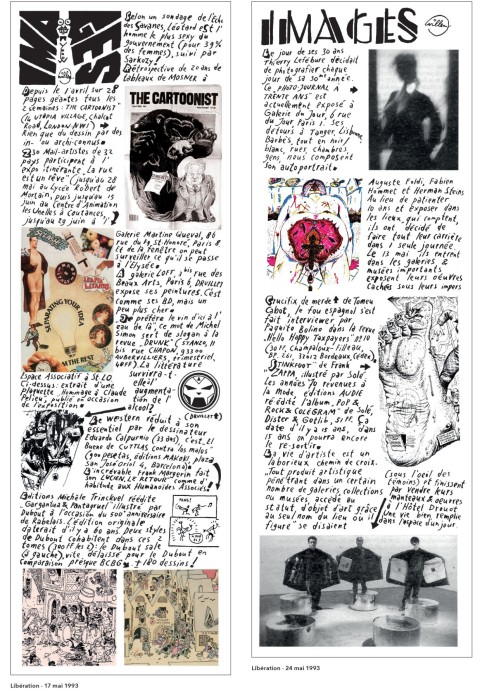 IMAGES
Selon un sondage de l'Écho
des Savanes, Léotard est l'
homme le plus sexy du
gouvernement (pour 39%
des femmes), suivi par
Sarkozy!
Rétrospective de 20 ans de
tableaux de MOSNER à
Depuis le 1 avril sur 28
pages géantes tous les
2 semaines: THE CARTOONIST
(10 UTOPIA VILLAGE, CHALCOT
ROAD, LONDON NW1)
Rien que du dessin par des
in- ou archi-connus.
230 Mail-artistes de 32
pays participent à l'
expo itinérante "La rue
est un rêve" (jusqu'au 28
mai au Lycée Robert de
Mortain, puis jusqu'au 15
juin au Centre d'Animation
les Unelles à Coutances,
jusqu'au 29 juin à l'
THE CARTOONIST
Galerie Martine Queval, 86
rue du Fg. St. Honoré, Paris 8.
Et de la fenêtre on peut
surveiller ce qu'il se passe
à l'Elysée
A galerie LOFT, 3 bis rue des
Beaux Arts, Paris 6, DRUILLET
expose ses peintures. C'est
comme ses BD, mais un
peu plus cher
"Je préfère le vin d'ici à l'
eau de là", ce mot de Michel
Simon sert de slogan à la
revue "DRUNK" (STANZO, 11
bis rue CHAPON, 93300
AUBERVILLIERS, trimestriel,
La littérature
survivra-t-
elle à l'
augmenta-
tion de l'
alcool?
SEPARATING YOUR YOLK
IN THE REST
(DRUILLET)
Espace Associatif à St LO.
Ci-dessus: extrait d'une
plaquette "hommage à Claude
Pélieu", publié à l'occasion
de l'exposition
Le western réduit à son
essentiel par le dessinateur
Eduardo Calpurnio (33 ans), c'est El
Bueno de CUTTLAS contra los malos
(900 pesetas, éditions MAKOKI, plaza
San José Oriol 4, Barcelona)
L'incroyable Frank Margerin fait
son LUCIEN, LE RETOUR comme d'
habitude aux Humanoïdes Associés!
Editions Michèle Trinckvel réédite
"Gargantua & Pantagruel" illustré par
Dubout à l'occasion du 500e anniversaire
de Rabelais. L'édition originale
daterait d'il y a 60 ans. Deux styles
de Dubout cohabitent dans ces 2
tomes (300 FF les 2): le Dubout sale
(à gauche), vite délaissé pour le Dubout en
comparaison presque BCBG + 180 dessins!
Libération - 17 mai 1993
IMAGES
Willem
Le jour de ses 30 ans
Thierry Lefébure décidait
de photografier chaque
jour de sa 30e année.
Ce "PHOTO JOURNAL À
TRENTE ANS" est
actuellement exposé à
Galerie du Jour, 6 rue
du Jour, Paris 1. Ses
détours à Tanger, Lisbonne,
Barbès, tout en noir/
blanc, rues, chambres,
gens, nous composent
son autoportrait
Auguste Foldi, Fabien
Hommet et Herman Steins
Au lieu de patienter
10 ans et exposer dans
les lieux, qui comptent,
ils ont décidé de
faire tout leur carrière
dans 1 seule journée.
Le 13 mai ils entrent
dans les galeries &
musées importants
exposent leurs oeuvres
cachés sous leurs impers
Crucifix de merde de Tomeu
Cabot, le fou espagnol s'est
fait interviewer par
Paquito Bolino dans la revue
"Hello Happy Taxpayers" n°10
(50 FF, Champaloux-Filleau,
BP. 261, 33012 Bordeaux Cédex)
"STINKFOOT" de Frank
ZAPPA, illustré par Solé,
les années 70 revenues à
la Mode, éditions AUDIE
réédite l'album "POP &
ROCK & COLEGRAM" de Solé,
Dister & Gotlib, 85 FF. Ça
date d'il y a 15 ans, dans
15 ans on pourra encore
le re-sortir
La vie d'artiste est un
laborieux chemin de croix.
Tout produit artistique
pénétrant dans un certain
nombre de galeries, collections
ou musées, accède au
statut d'objet d'art grâce
au seul nom du lieu où il
figure" se disaient
(sous l'oeil des
témoins) et finissent
par vendre leurs
manteaux & oeuvres
à l'Hôtel Drouot.
Une vie bien remplie
dans l'espace d'un jour.
Libération - 24 mai 1993